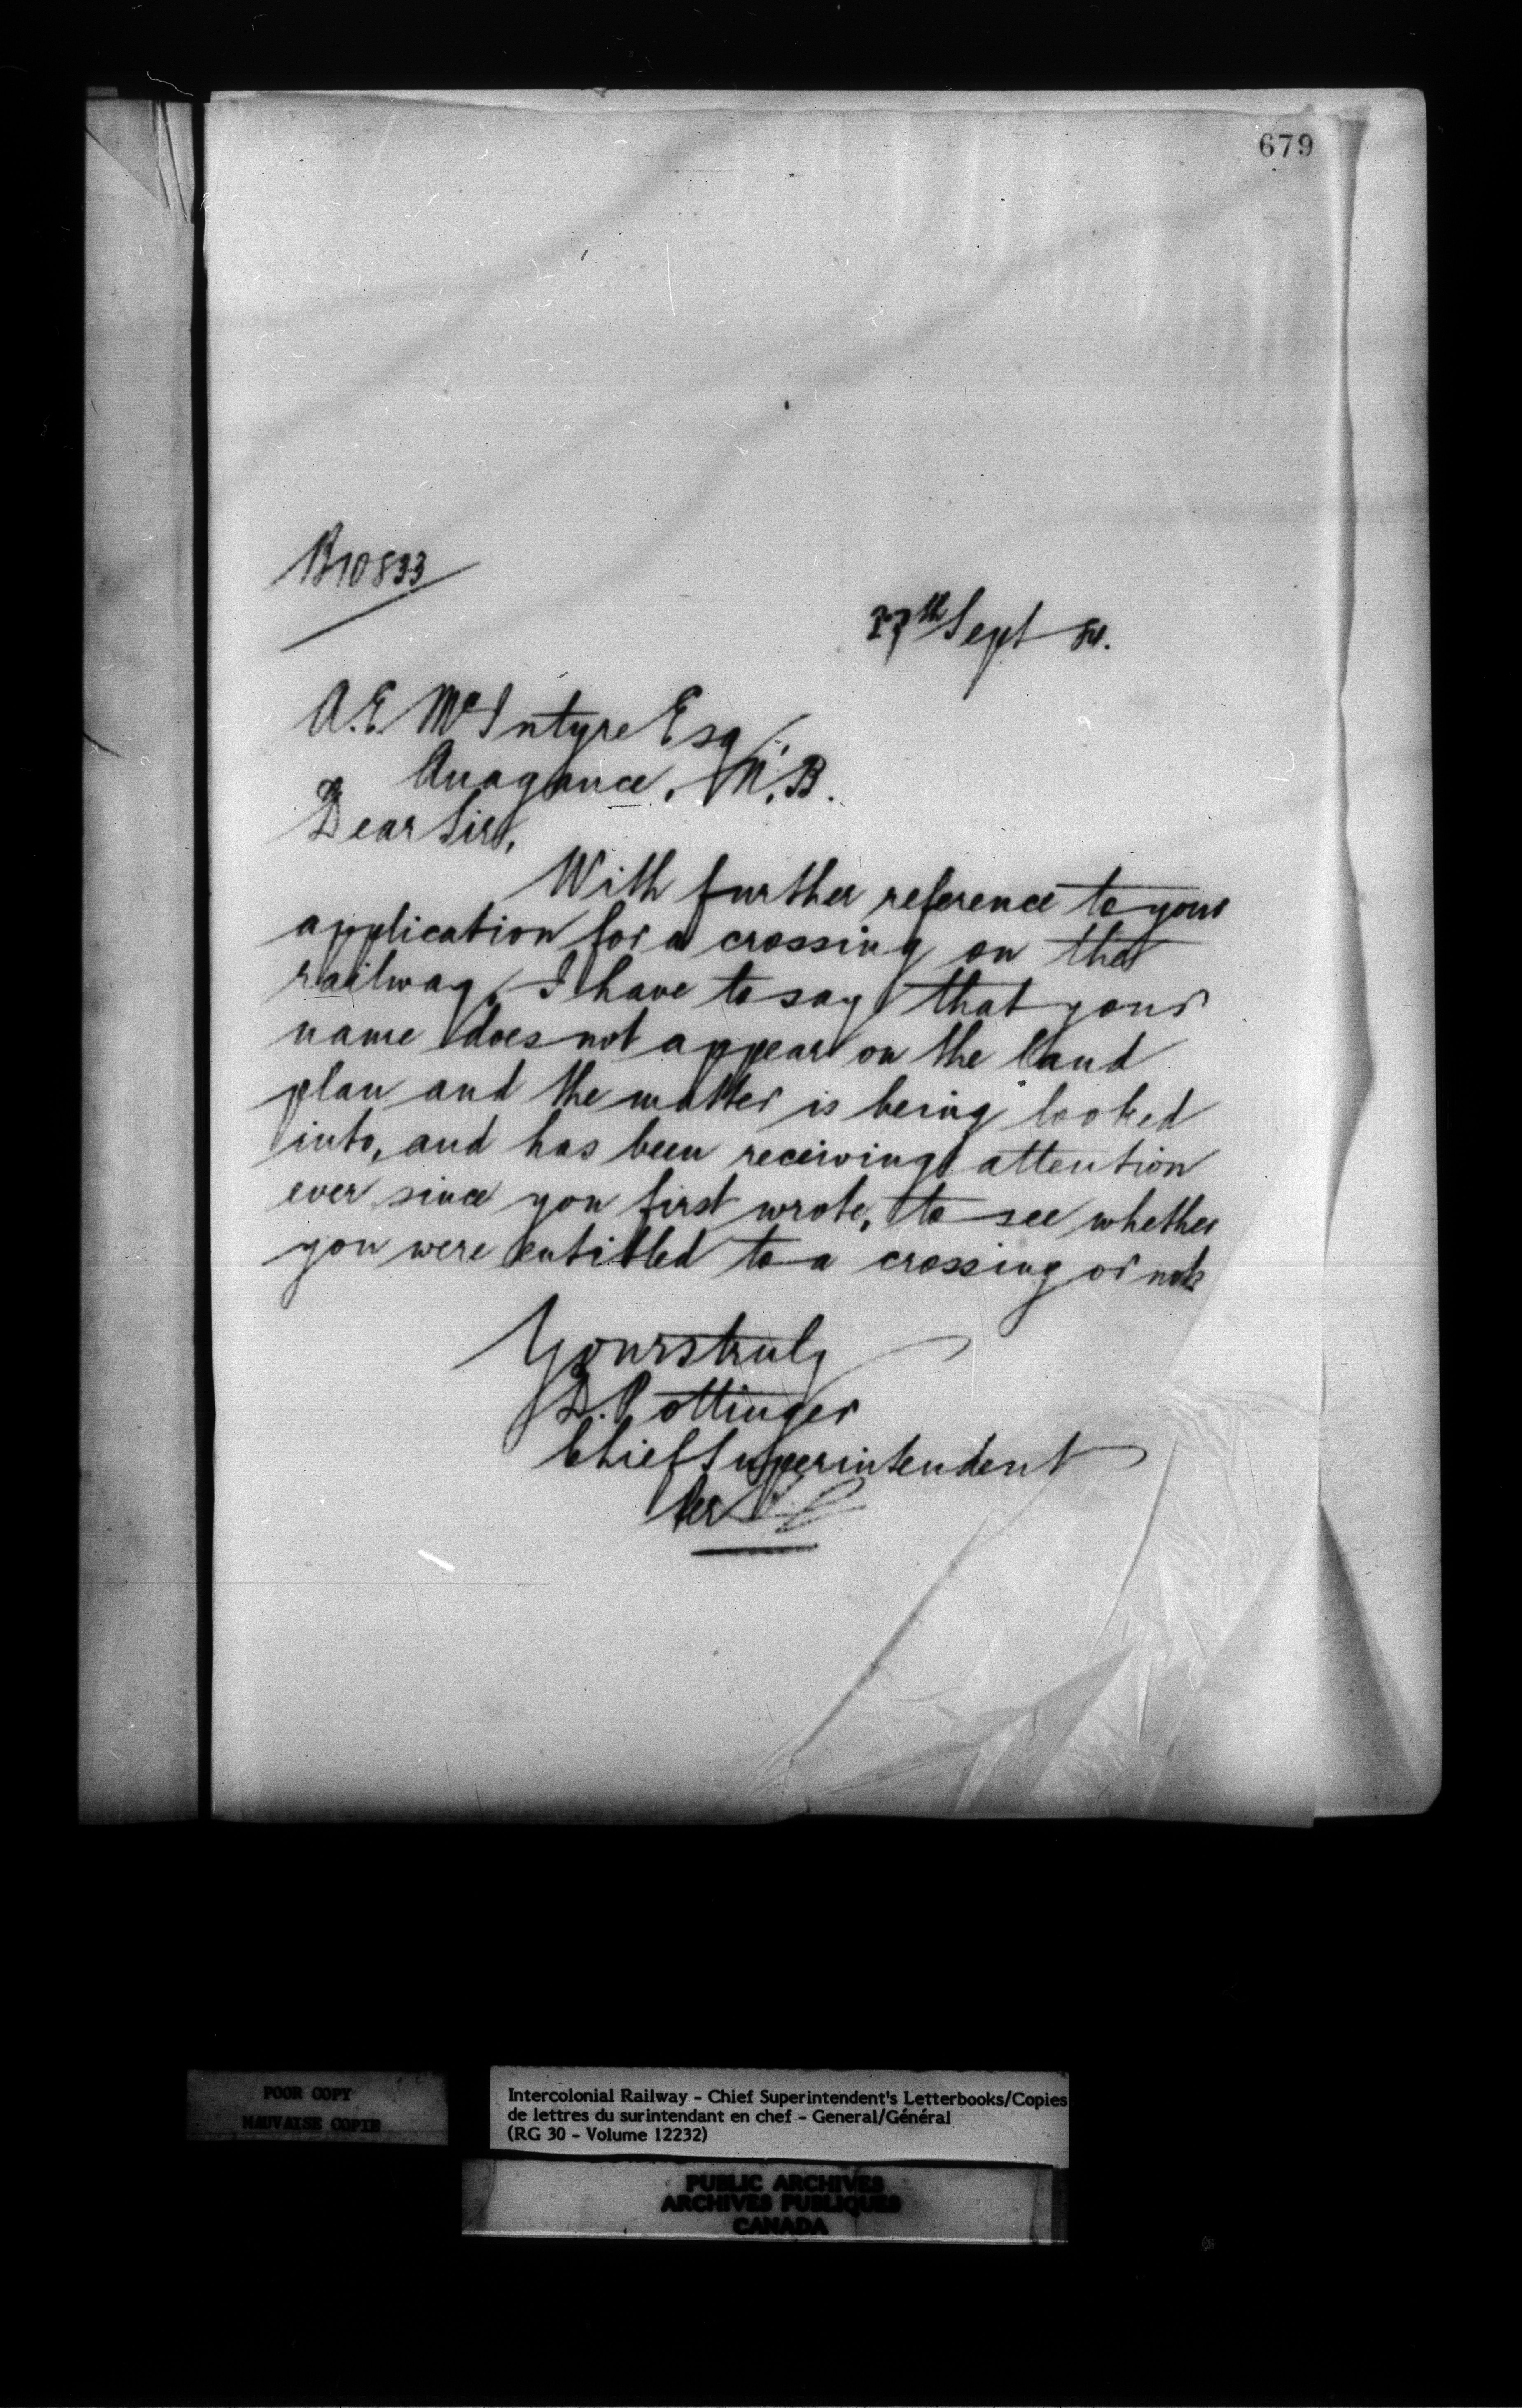 679
B10833
27th Sept 84.
A. E. McIntyre Esq.
Anagance, N.B.
Dear Sir,
With further reference to your
application for a crossing on the
railway, I have to say that your
name does not appear on the land
plan and the matter is being looked
into, and has been receiving attention
ever since you first wrote, to see whether
you were entitled to a crossing or not
Yours truly
D. Pottinger
Chief Superintendent
Per
POOR COPY
MAUVAISE COPIE
Intercolonial Railway - Chief Superintendent's Letterbooks/Copies
de lettres du surintendant en chef - General/Général
(RG 30 - Volume 12232)
PUBLIC ARCHIVES
ARCHIVES PUBLIQUES
CANADA